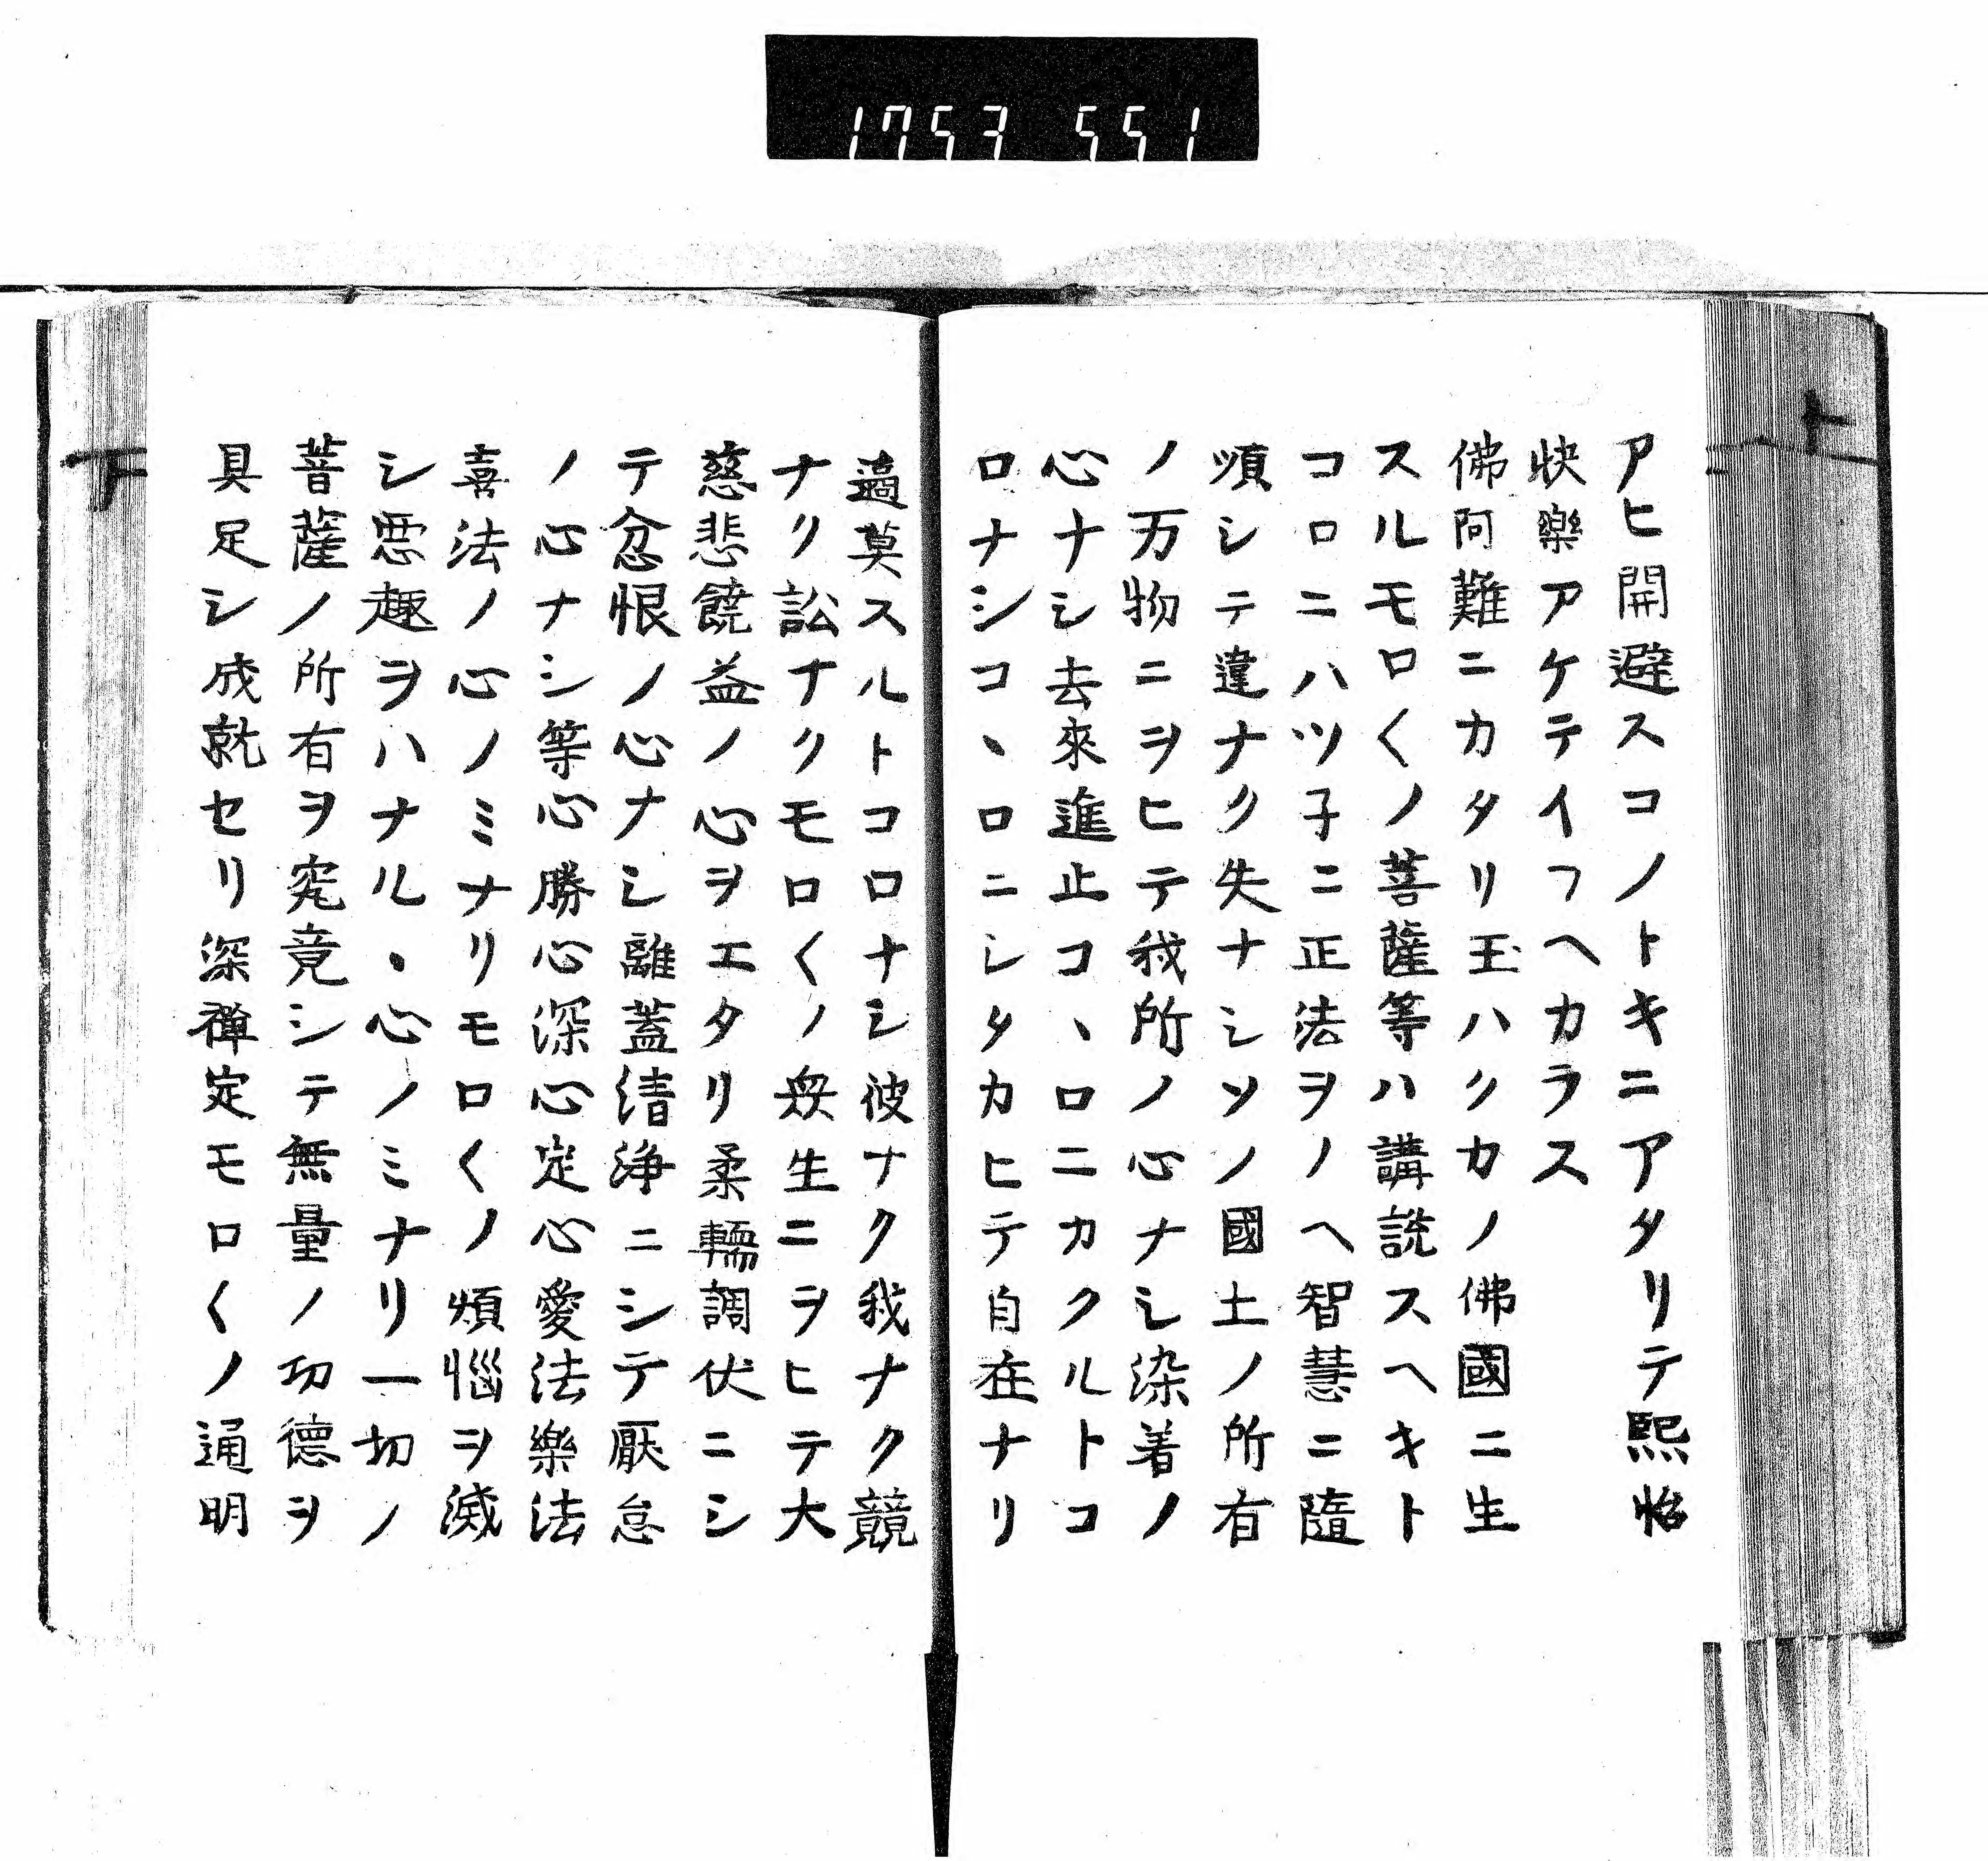 1753 551
アヒ開避スコノトキニアタリテ熙怡
快樂アケテイフヘカラス
佛阿難ニカタリ玉ハクカノ佛國ニ生
スルモロ〱ノ菩薩等ハ講説スヘキト
コロニハツ子ニ正法ヲノヘ智慧ニ隨
順シテ違ナク失ナシソノ國土ノ所有
ノ万物ニヲヒテ我所ノ心ナシ染着ノ
心ナシ去來進止コヽロニカクルトコ
ロナシコヽロニシタカヒテ自在ナリ
適莫スルトコロナシ彼ナク我ナク競
ナク訟ナクモロ〱ノ衆生ニヲヒテ大
慈悲饒益ノ心ヲエタリ柔輭調伏ニシ
テ忿恨ノ心ナシ離蓋清淨ニシテ厭怠
ノ心ナシ等心勝心深心定心愛法樂法
喜法ノ心ノミナリモロ〱ノ煩惱ヲ滅
シ悪趣ヲハナルヽ心ノミナリ一切ノ
菩薩ノ所有ヲ究竟シテ無量ノ功德ヲ
具足シ成就セリ深禪定モロ〱ノ通明